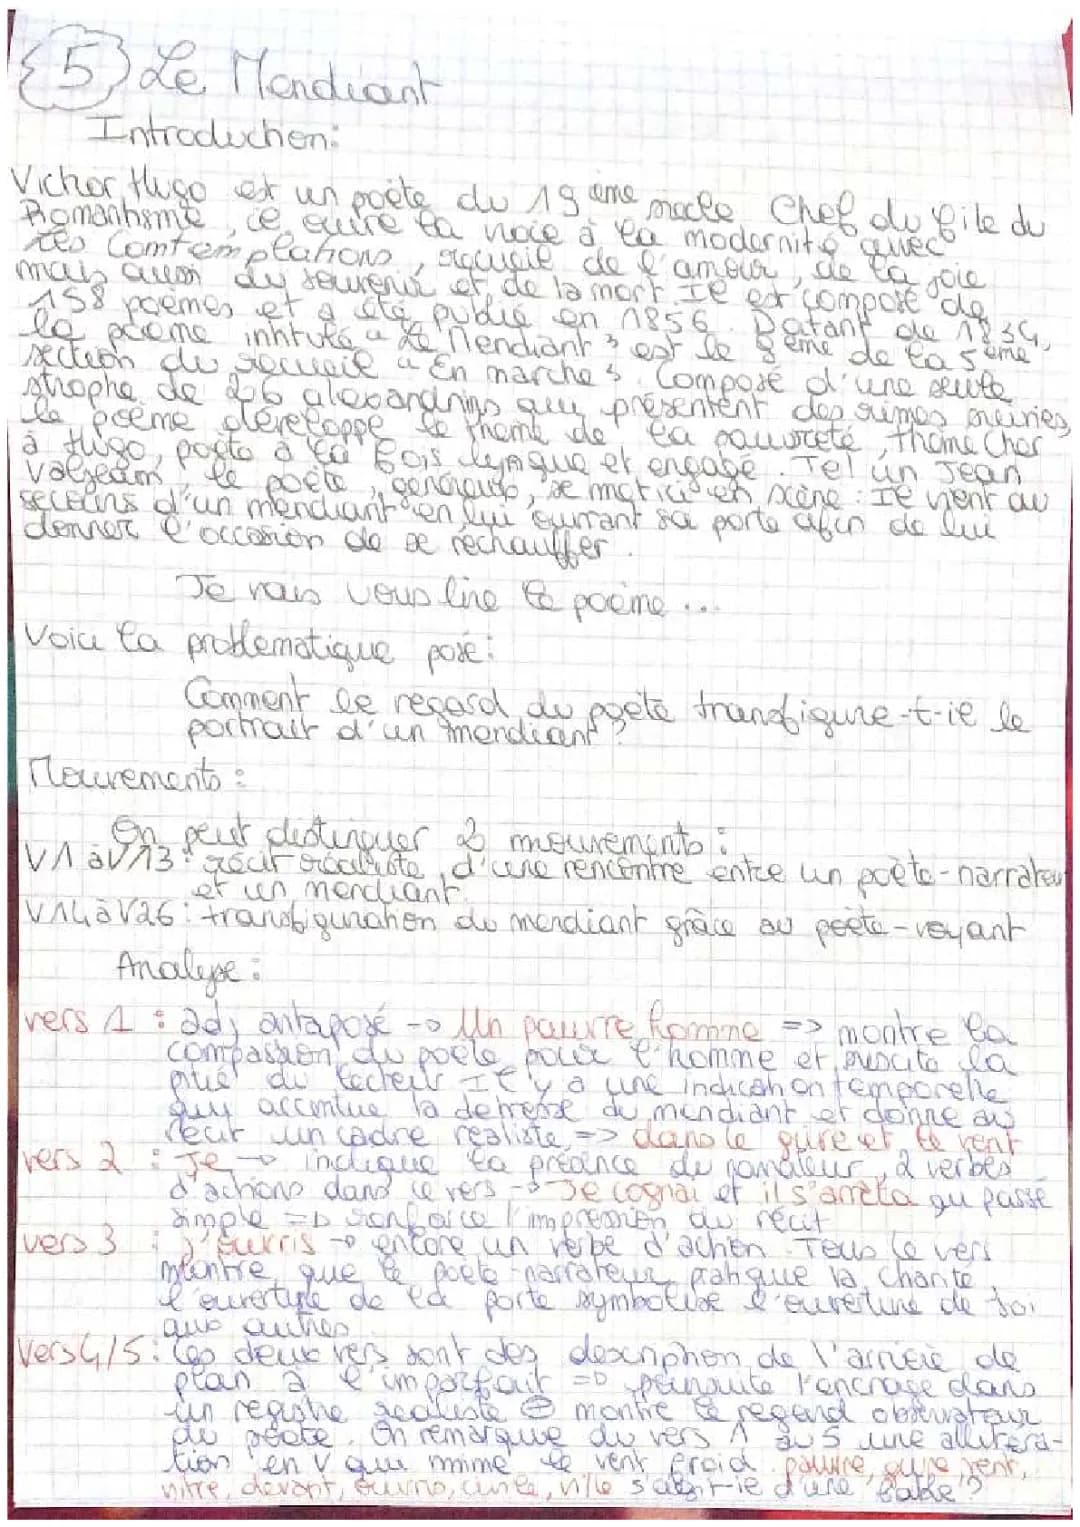 5 Le Mendiant
Introduction:
Victor Hugo est un poète du 19 ème siècle Chef du file du
Romantisme, ce livre la voie à la modernité avec
les Comtemplations, recueil de l'amour, de la joie
mais aussi du souvenir et de la mort. Il est composé de
158 poèmes et a été publié en 1856. Datant de 1834,
le poème intitulé "Le Mendiant" est le 9ème de la 5ème
section du recueil "En marche". Composé d'une seule
strophe de 26 alexandrins qui présentent des rimes suivies,
le poème développe le thème de la pauvreté, thème cher
à Hugo, poète à la fois lyrique et engagé. Tel un Jean
Valjean, le poète, généreux, se met ici en scène : Il vient au
secours d'un mendiant en lui ouvrant sa porte afin de lui
donner l'occasion de se réchauffer.
Je vais vous lire le poème ...
Voici la problématique posé :
Comment le regard du poète transfigure-t-il le
portrait d'un mendiant ?
Mouvements :
On peut distinguer 2 mouvements :
V1 à V13 : récit réaliste d'une rencontre entre un poète-narrateur
et un mendiant.
V14 à V26 : transfiguration du mendiant grâce au poète-voyant
Analyse :
vers 1 : adj antéposé -> Un pauvre homme => montre la
compassion du poète pour l'homme et suscite la
pitié du lecteur. Il y a une indication temporelle
qui accentue la détresse du mendiant et donne au
récit un cadre réaliste => dans le givre et le vent
vers 2 : Je -> indique la présence du narrateur, 2 verbes
d'actions dans ce vers -> Je cognai et il s'arrêta au passé
simple => renforce l'impression du récit
vers 3 : J'ouvris -> encore un verbe d'action. Tous ce vers
montre que le poète-narrateur pratique la charité,
l'ouverture de la porte symbolise l'ouverture de soi
aux autres
Vers 4/5 : Ces deux vers sont des description de l'arrière de
plan à l'imparfait => poursuite l'encrage dans
un registre réaliste montre le regard observateur
du poète. On remarque du vers 1 au 5 une allitéra-
tion en v qui mime le vent froid. pauvre, givre, vent,
vitre, devant, ville s'agit-il d'une fable ?